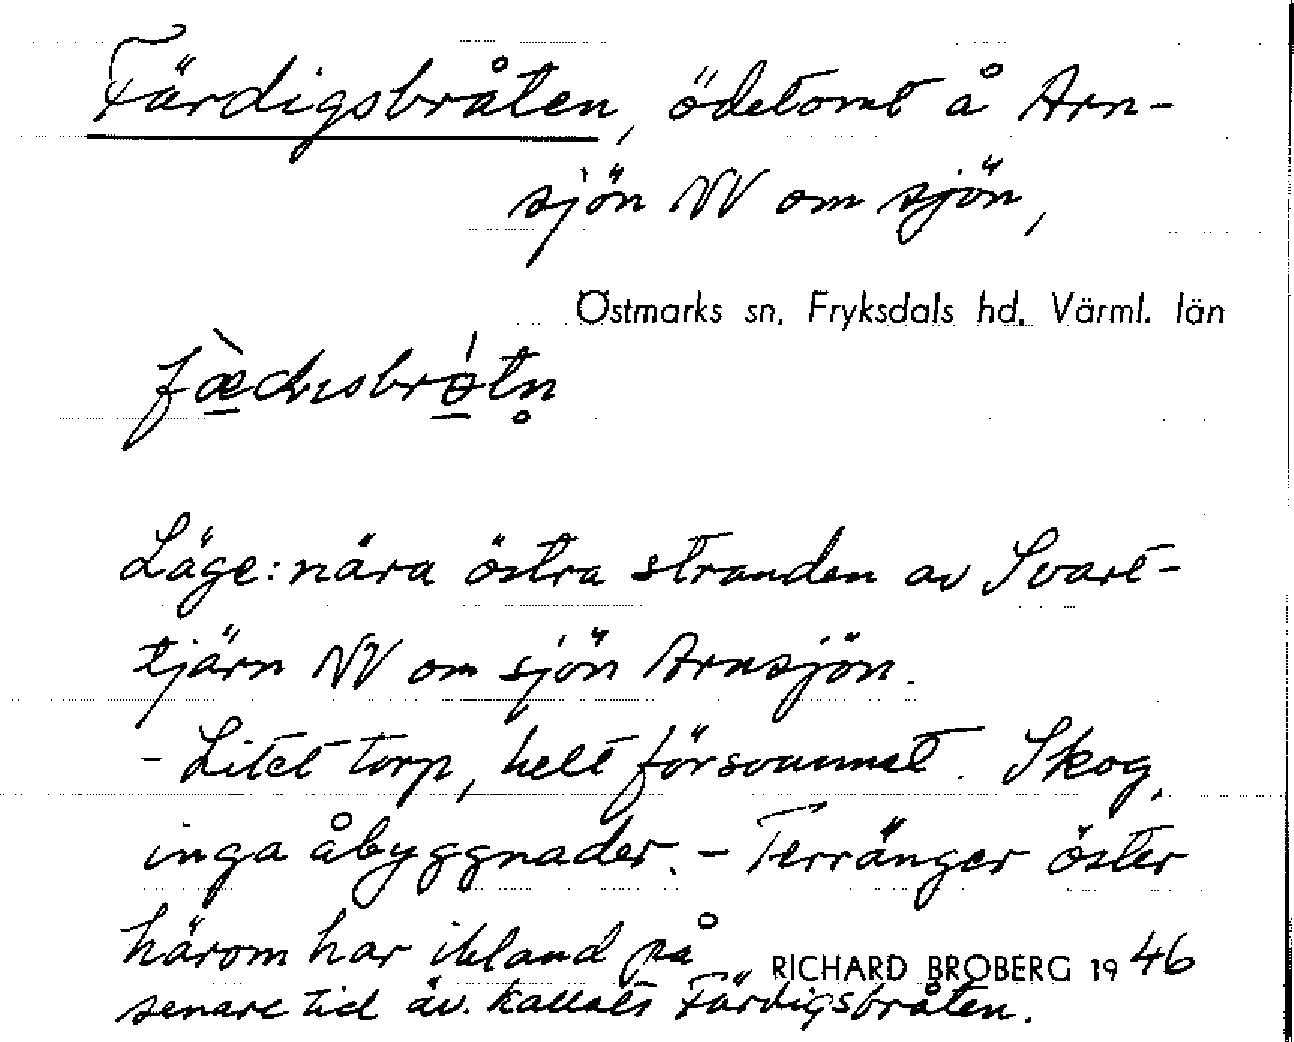 Färdigsbråten, ödetomt å Arn-
sjön NV om sjön,
Östmarks sn, Fryksdals hd, Värml. län
Läge: nära östra stranden av Svart-
tjärn NV om sjön Arnsjön.
- Litet torp, helt försvunnet. Skog,
inga åbyggnader. - Terränger öster
härom har ibland på
RICHARD BROBERG 1946
senare tid äv. kallats Färdigsbråten.